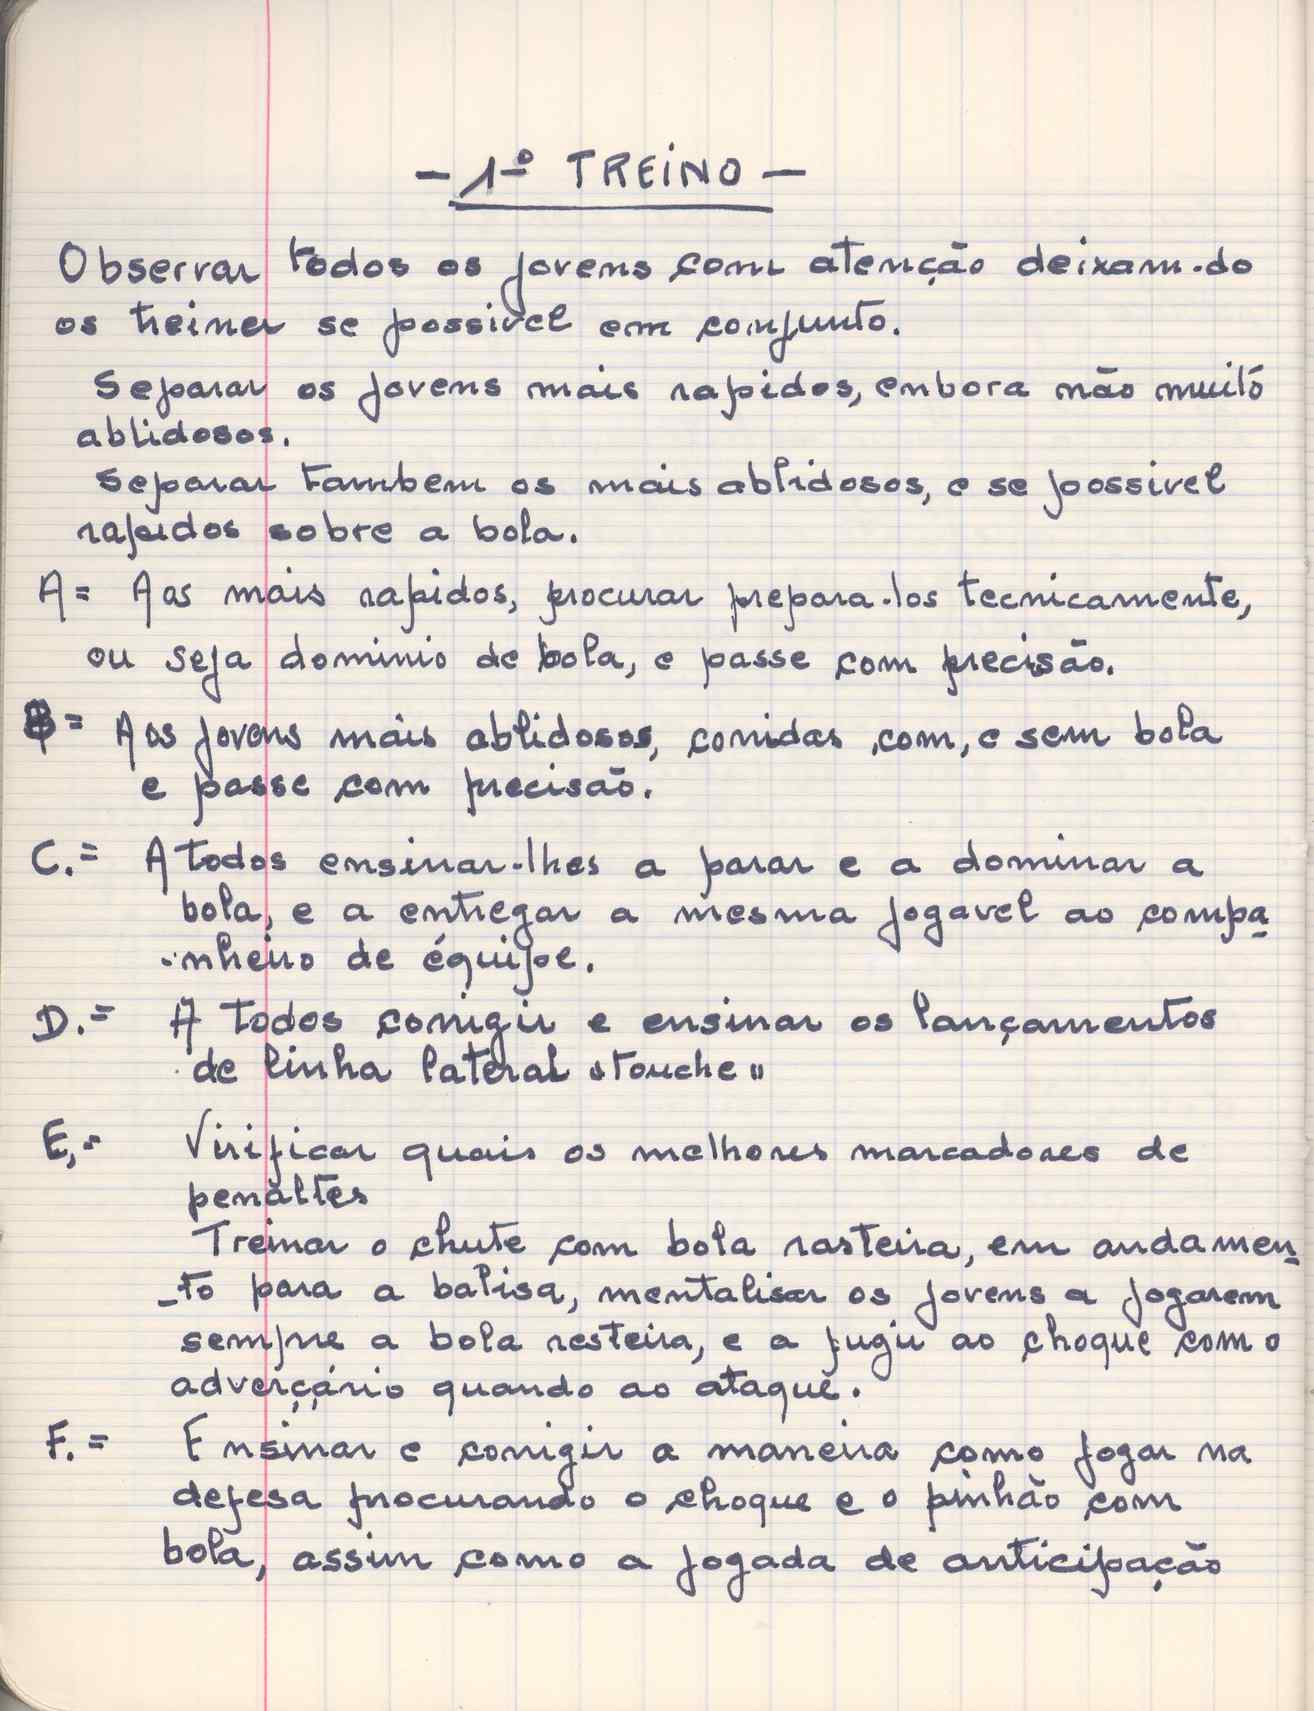 - 1º TREINO -
Observar todos os jovens com atenção deixam-do
os treiner se possivel em conjunto.
Separar os jovens mais rapidos, embora não muitó
ablidosos.
Separar tambem os mais ablidosos, e se possivel
rapidos sobre a bola.
A= Aos mais rapidos, procurar prepara-los tecnicamente,
ou seja dominio de bola, e passe com precisão.
B= Aos jovens mais ablidosos, corridas com, e sem bola
e passe com precisão.
C.= A todos ensinar-lhes a parar e a dominar a
bola, e a entregar a mesma jogavel ao compa
-nheiro de équipe.
D.= A todos corrigir e ensinar os lançamentos
de linha lateral "touche"
E,= Virificar quais os melhores marcadores de
penàltes
Treinar o chute com bola rasteira, em andamen
-to para a balisa, mentalisar os jovens a jogarem
sempre a bola resteira, e a fugir ao choque com o
adverçário quando ao ataque.
F.= Ensinar e corrigir a maneira como jogar na
defesa procurando o choque e o pinhão com
bola, assim como a jogada de anticipação